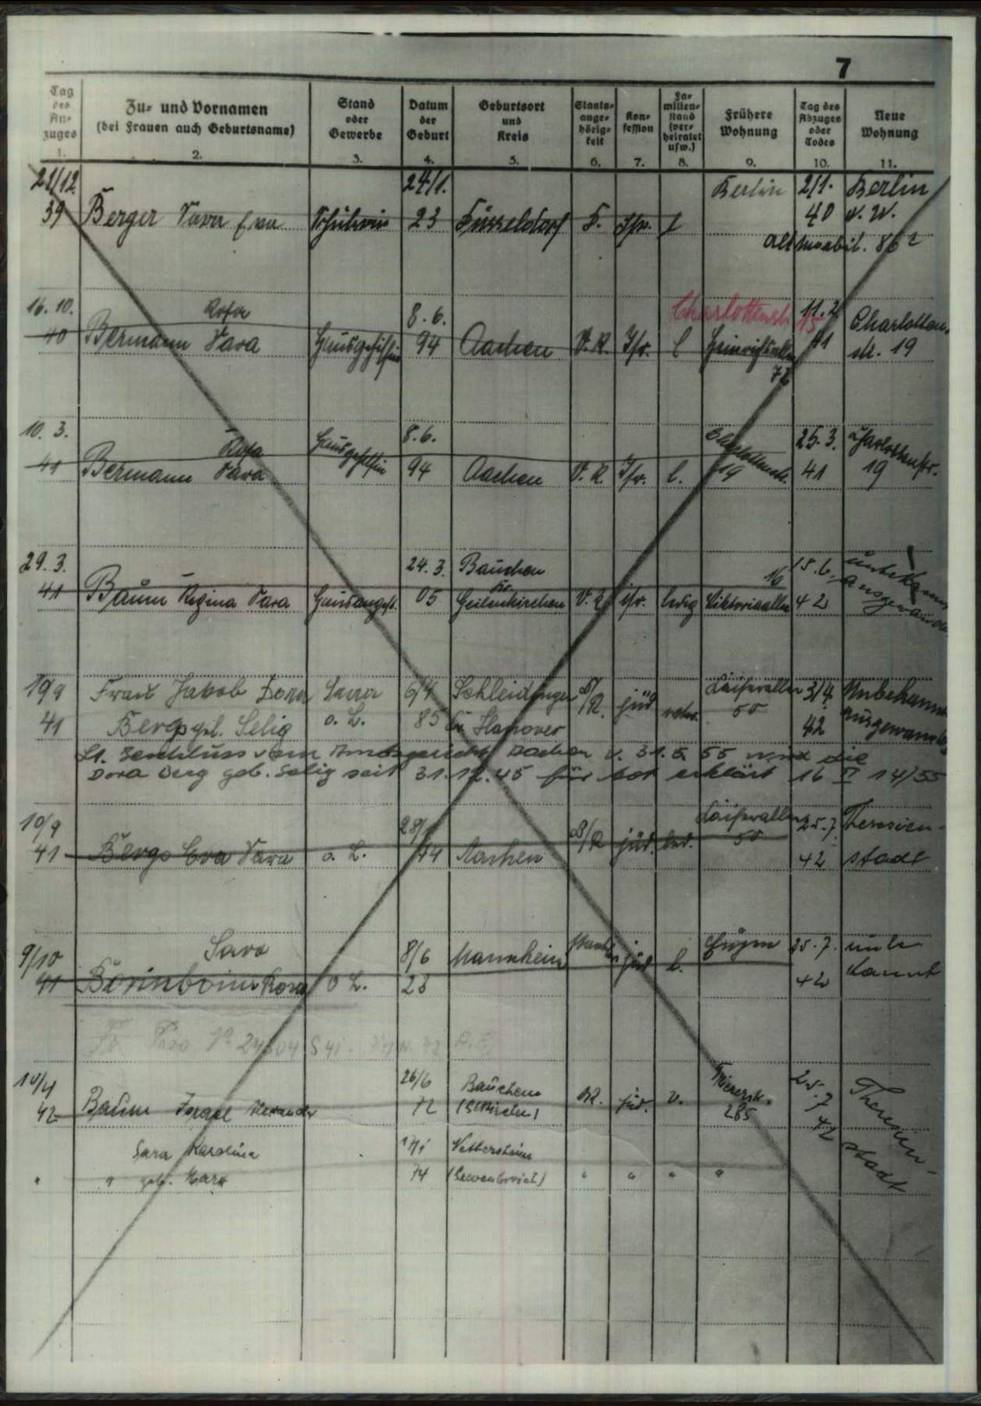 7
Tag des An- zuges
Zu- und Vornamen (bei Frauen auch Geburtsname)
Stand oder Gewerbe
Datum der Geburt
Geburtsort und Kreis
Staats- ange- hörig- keit
Kon- fession
Fa- milien- stand (ver- heiratet usw.)
Frühere Wohnung
Tag des Abzuges oder Todes
Neue Wohnung
1. 2. 3. 4. 5. 6. 7. 8. 9. 10. 11.
21/12. 24/1. Berlin 2/1. Berlin
39 Berger Sara Eva Schülerin 23 Düsseldorf D. Isr. l 40 N. W.
Alt Moabit. 86
16. 10. Rosa 8. 6. Charlottenstr. 15 11.2 Charlotten-
40 Bermann Sara Hausgehilfin 94 Aachen D. R. Isr. l Heinrichsallee 41 str. 19
10. 3. Rosa Hausgehilfin 8. 6. Charlottenstr. 25.3. Charlottenstr.
41 Bermann Sara 94 Aachen D. R. Isr. l. 19 41 19
29. 3. 24. 3. Bauchem 16 15.6. unbekannt
41 Baum Regina Sara Hausangest. 05 Kr. Geilenkirchen D. R. isr. ledig Viktoriaallee 42 ausgewandert
19/9 Frau Jakob Dora Sara 6/4 Schleidingen D/R. jüd verw. 50 3/4. Unbekannt
41 Berg geb. Selig o. L. 85 Kr. Hanover 42 ausgewandert
Lt. Beschluss vom Amtsgericht Aachen v. 31. 5. 55 wird die
Dora Berg geb. Selig seit 31. 12. 45 für tot erklärt 16 II 14/55
10/9 28/ 50 25. 7. Theresien-
41 Berg Eva Sara o. L. 44 Aachen D/R jüd. led. 42 stadt
9/10 Sara 8/6 Mannheim jüd l. 25. 7. unbe
41 Rosa o L. 23 42 kannt
10/4 26/6 Bauchem 25. 7
42 Baum Israel Alexander 72 (Glkirchen) D.R. jüd. v. Trierstr. 285 42 Theresien-
Sara Karolina 17/1 Vettersheim stadt
" " geb. Marx 74 (Grevenbroich) " " " "